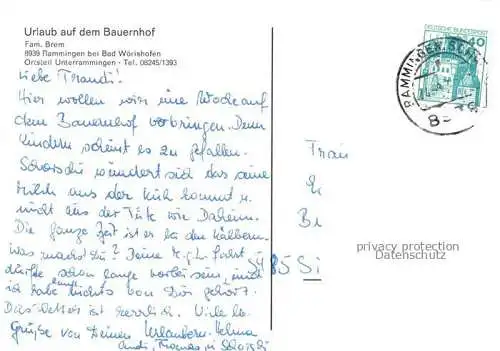 Urlaub auf dem Bauernhof
Fam. Brem
8939 Rammingen bei Bad Wörishofen
Ortsteil Unterrammingen · Tel. 08245/1393
DEUTSCHE BUNDESPOST
40
RAMMINGEN
Liebe Traudi!
Hier wollen wir eine Woche auf
dem Bauernhof verbringen. Den
Kindern scheint es zu gefallen.
Schorschi wundert sich das seine
Milch aus der Kuh kommt u.
nicht aus der Tüte wie Daheim.
Die ganze Zeit ist er bei den Kälbern.
Was machst Du? Deine
dürfte schon lange vorbei sein,
ich habe nichts von Dir gehört.
Das Wetter ist herrlich. Viele
Grüße von Deinen Urlaubern Helma
Andi, Thomas u. Schorschi
Frau
Be
8
Si
privacy protection
Datenschutz